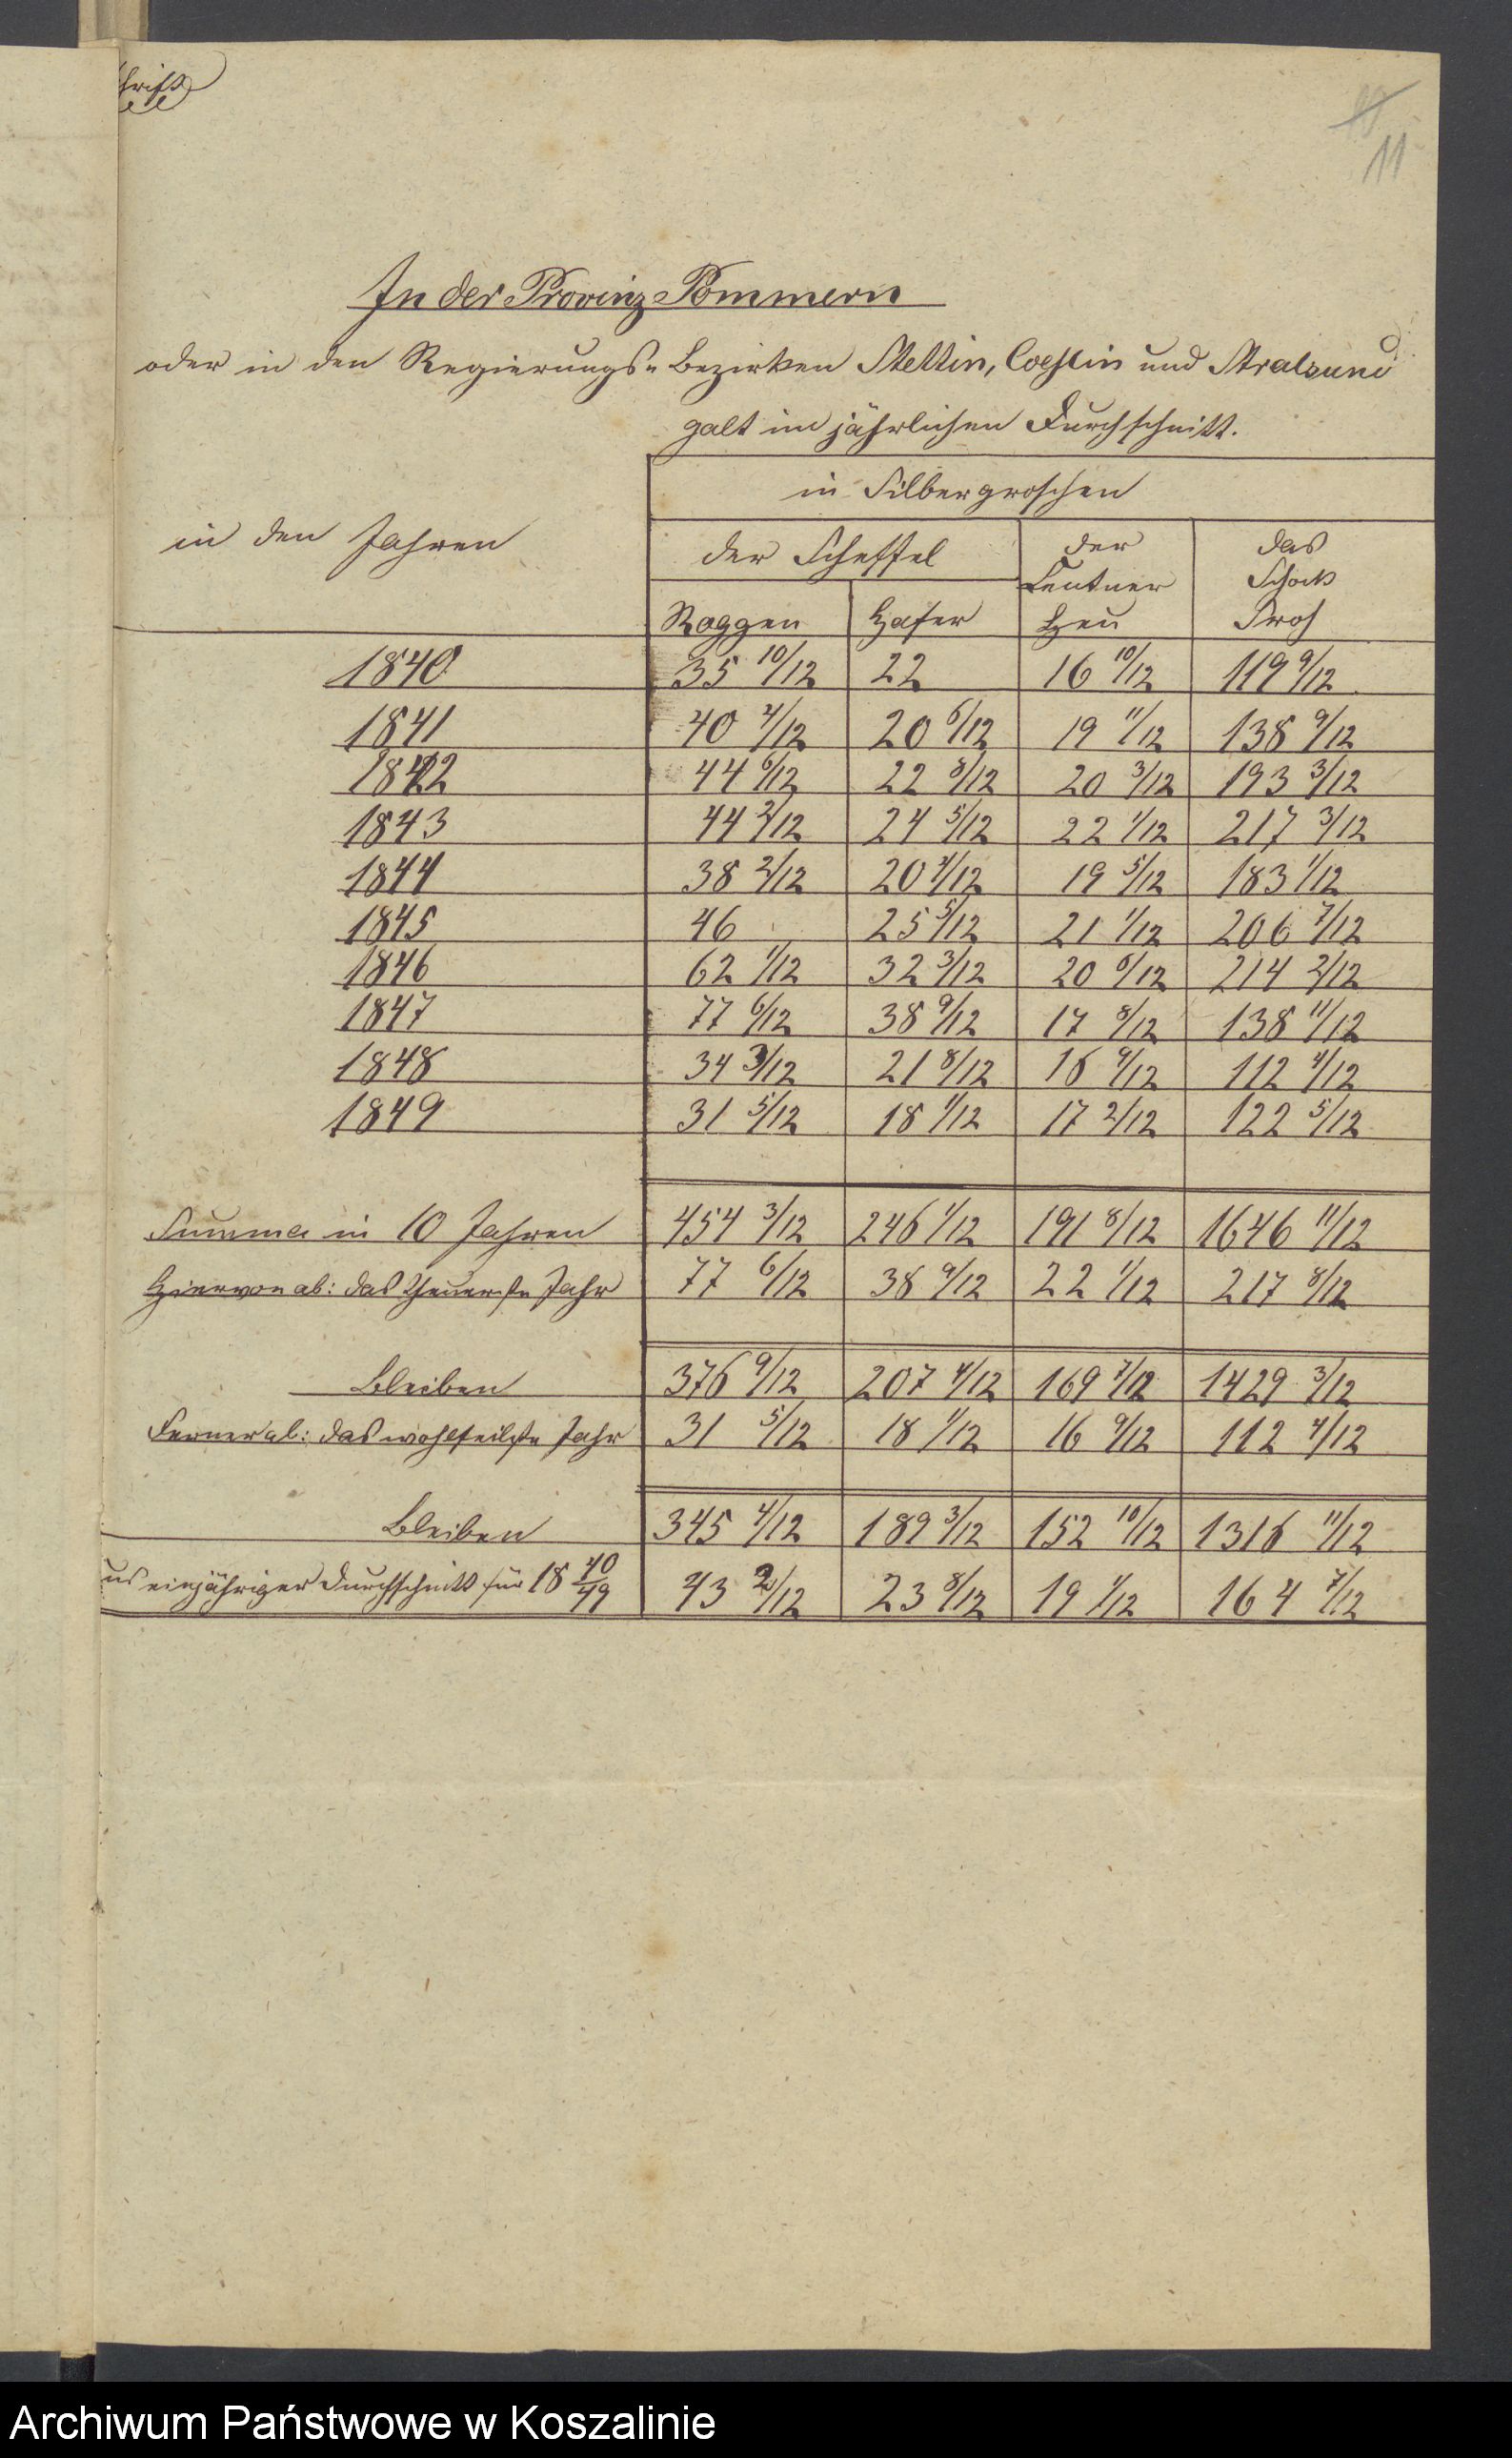 11
In der Provinz Pommern
oder in den Regierungs-Bezirken Stettin, Coeslin und Stralsund
galt im jährlichen Durchschnitt.
in Silbergroschen
in den Jahren
der Scheffel der Centner das Schock
Roggen Hafer Heu Stroh
1840 35 10/12 22 16 10/12 119 9/12
1841 40 4/12 20 6/12 19 11/12 138 9/12
1842 44 6/12 22 8/12 20 3/12 193 3/12
1843 44 2/12 24 5/12 22 1/12 217 3/12
1844 38 2/12 20 4/12 19 5/12 183 1/12
1845 46 25 5/12 21 1/12 206 7/12
1846 62 1/12 32 3/12 20 6/12 214 2/12
1847 77 6/12 38 9/12 17 8/12 138 11/12
1848 34 3/12 21 8/12 16 9/12 112 4/12
1849 31 5/12 18 1/12 17 2/12 122 5/12
Summa in 10 Jahren 454 3/12 246 1/12 191 8/12 1646 11/12
Hiervon ab: das theuerste Jahr 77 6/12 38 9/12 22 1/12 217 8/12
Bleiben 376 9/12 207 4/12 169 7/12 1429 3/12
Ferner ab: das wohlfeilste Jahr 31 5/12 18 1/12 16 9/12 112 4/12
Bleiben 345 4/12 189 3/12 152 10/12 1316 11/12
einjähriger Durchschnitt für 18 40/49 43 2/12 23 8/12 19 1/12 164 7/12
Archiwum Państwowe w Koszalinie